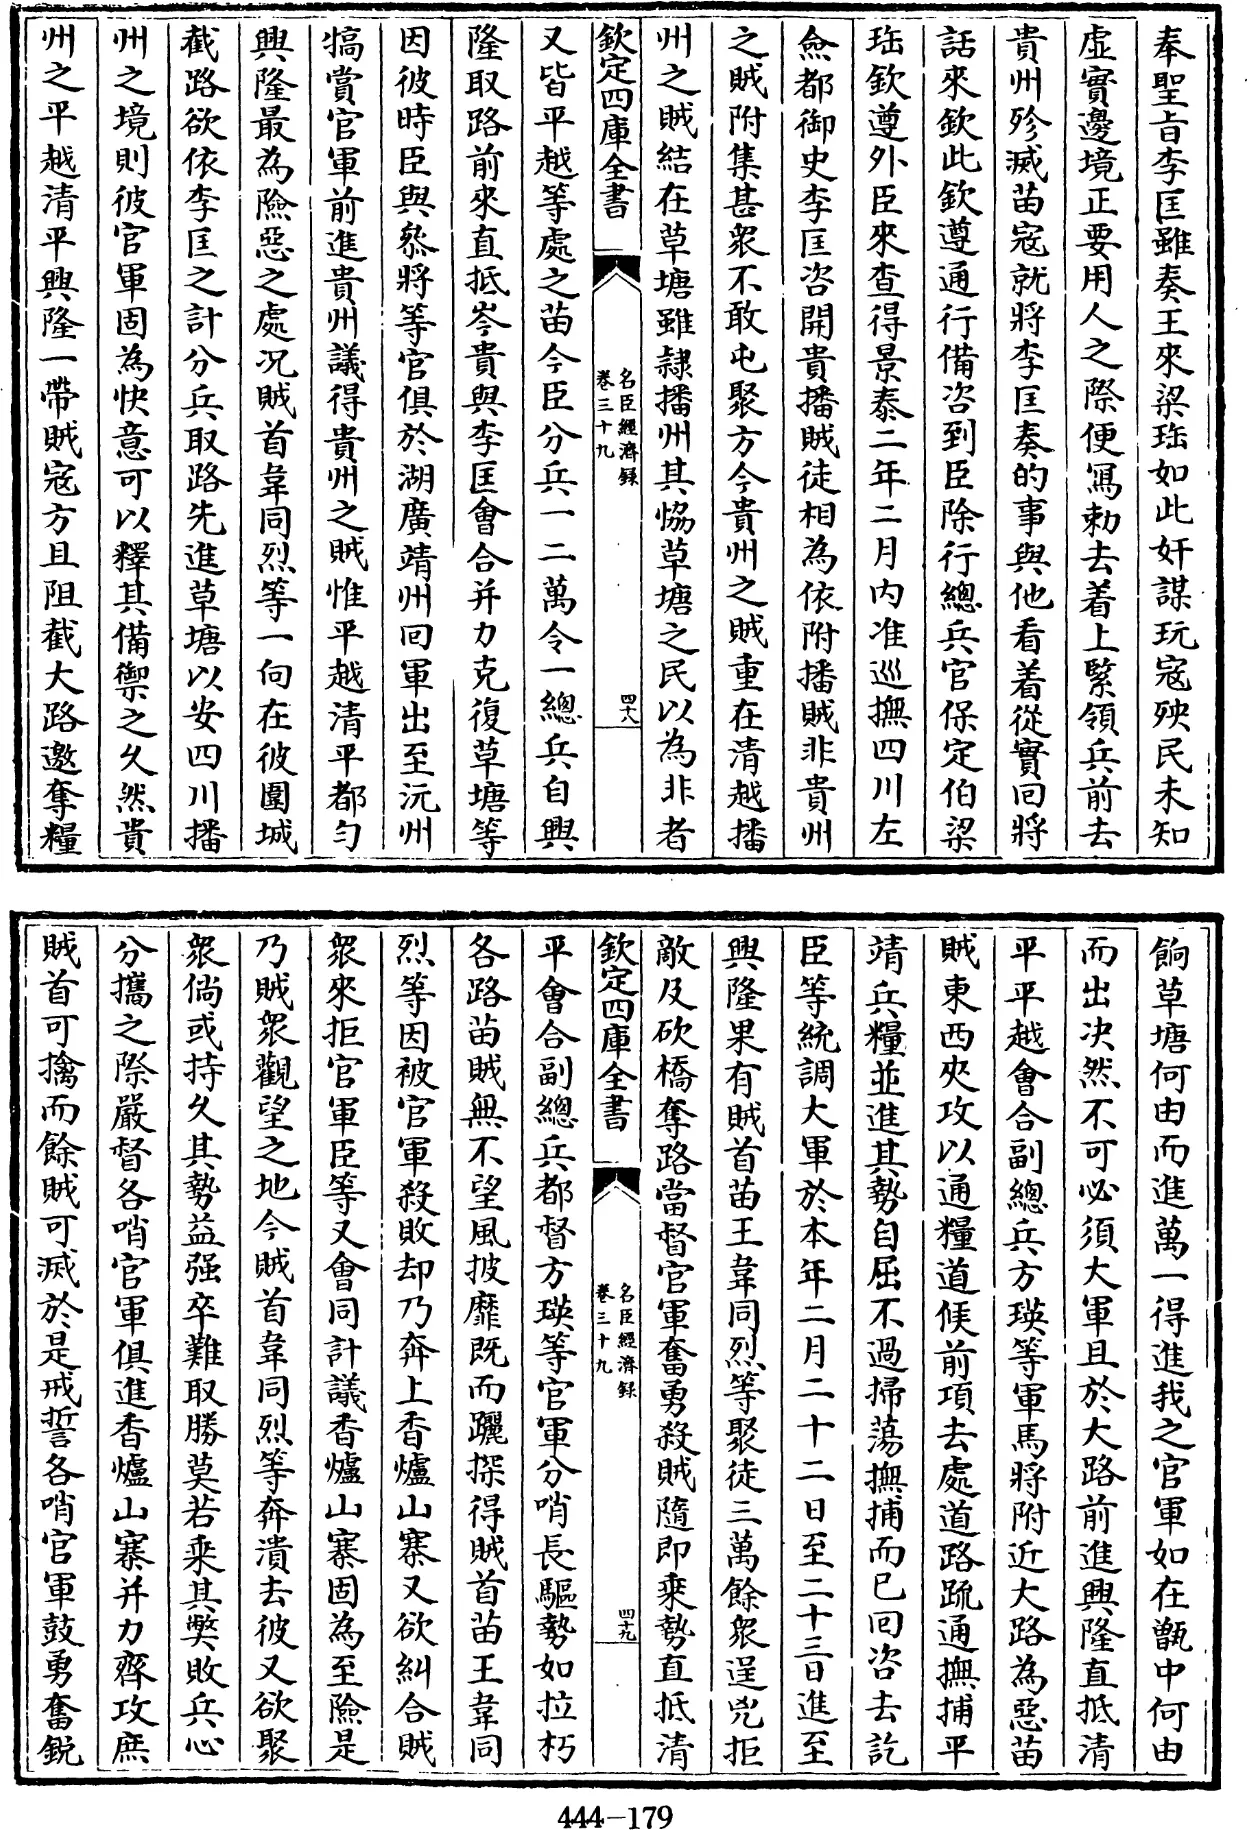 奉聖旨李匡雖奏王來梁珤如此奸謀玩寇殃民未知
虛實邊境正要用人之際便寫勅去着上緊領兵前去
貴州殄滅苗寇就將李匡奏的事與他看着從實回將
話來欽此欽遵通行備咨到臣除行總兵官保定伯梁
珤欽遵外臣來查得景泰二年二月内准巡撫四川左
僉都御史李匡咨開貴播賊徒相為依附播賊非貴州
之賊附集甚衆不敢屯聚方今貴州之賊重在清越播
州之賊結在草塘雖隸播州其恊草塘之民以為非者
欽定四庫全書
名臣經濟録
卷三十九
四十八
又皆平越等處之苗今臣分兵一二萬令一總兵自興
隆取路前來直抵岑貴與李匡會合并力克復草塘等
因彼時臣與叅將等官俱於湖廣靖州回軍出至沅州
犒賞官軍前進貴州議得貴州之賊惟平越清平都勻
興隆最為險惡之處况賊首韋同烈等一向在彼圍城
截路欲依李匡之計分兵取路先進草塘以安四川播
州之境則彼官軍固為快意可以釋其備禦之久然貴
州之平越清平興隆一帶賊寇方且阻截大路邀奪糧
餉草塘何由而進萬一得進我之官軍如在甑中何由
而出决然不可必須大軍且於大路前進興隆直抵清
平平越會合副總兵方瑛等軍馬將附近大路為惡苗
賊東西夾攻以通糧道候前項去處道路疏通撫捕平
靖兵糧並進其勢自屈不過掃蕩撫捕而已回咨去訖
臣等統調大軍於本年二月二十二日至二十三日進至
興隆果有賊首苗王韋同烈等聚徒三萬餘衆逞兇拒
敵及砍橋奪路當督官軍奮勇殺賊隨即乗勢直抵清
欽定四庫全書
名臣經濟録
卷三十九
四十九
平會合副總兵都督方瑛等官軍分哨長驅勢如拉朽
各路苗賊無不望風披靡既而躧探得賊首苗王韋同
烈等因被官軍殺敗却乃奔上香爐山寨又欲糾合賊
衆來拒官軍臣等又會同計議香爐山寨固為至險是
乃賊衆觀望之地今賊首韋同烈等奔潰去彼又欲聚
衆倘或持久其勢益强卒難取勝莫若乗其獘敗兵心
分攜之際嚴督各哨官軍俱進香爐山寨并力齊攻庶
賊首可擒而餘賊可滅於是戒誓各哨官軍鼓勇奮鋭
444-179